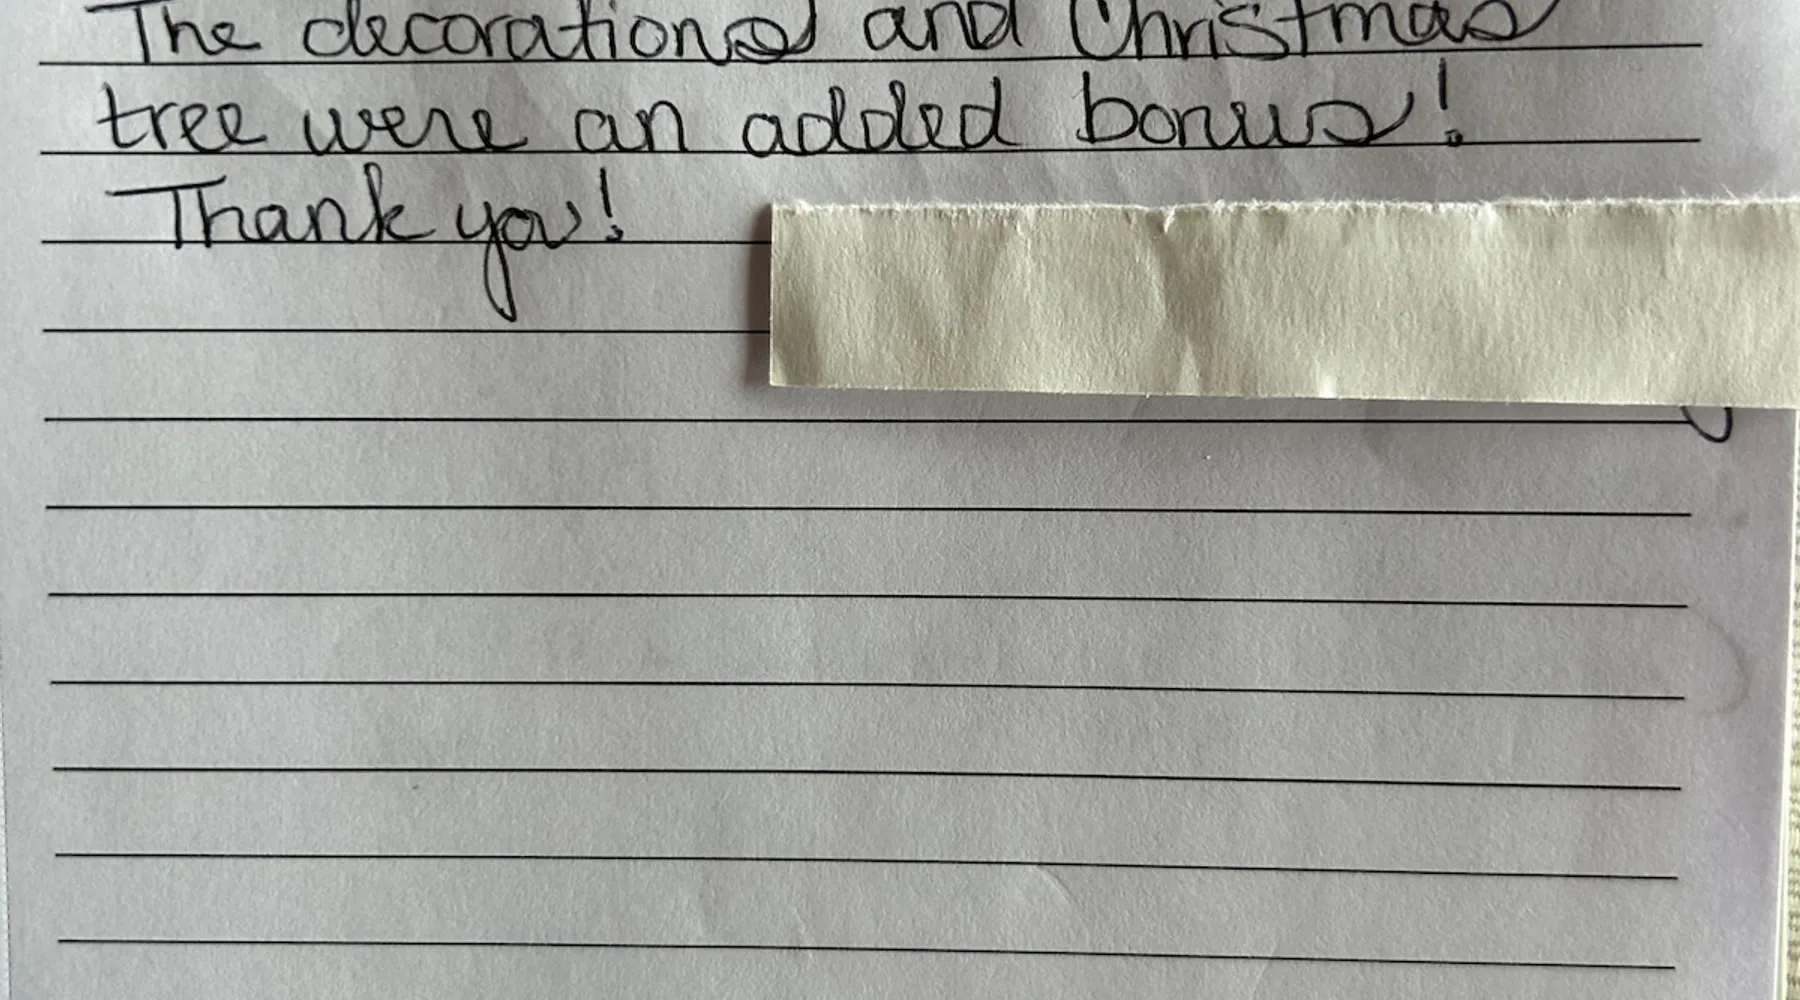 The decorations and Christmas
tree were an added bonus!
Thank you!